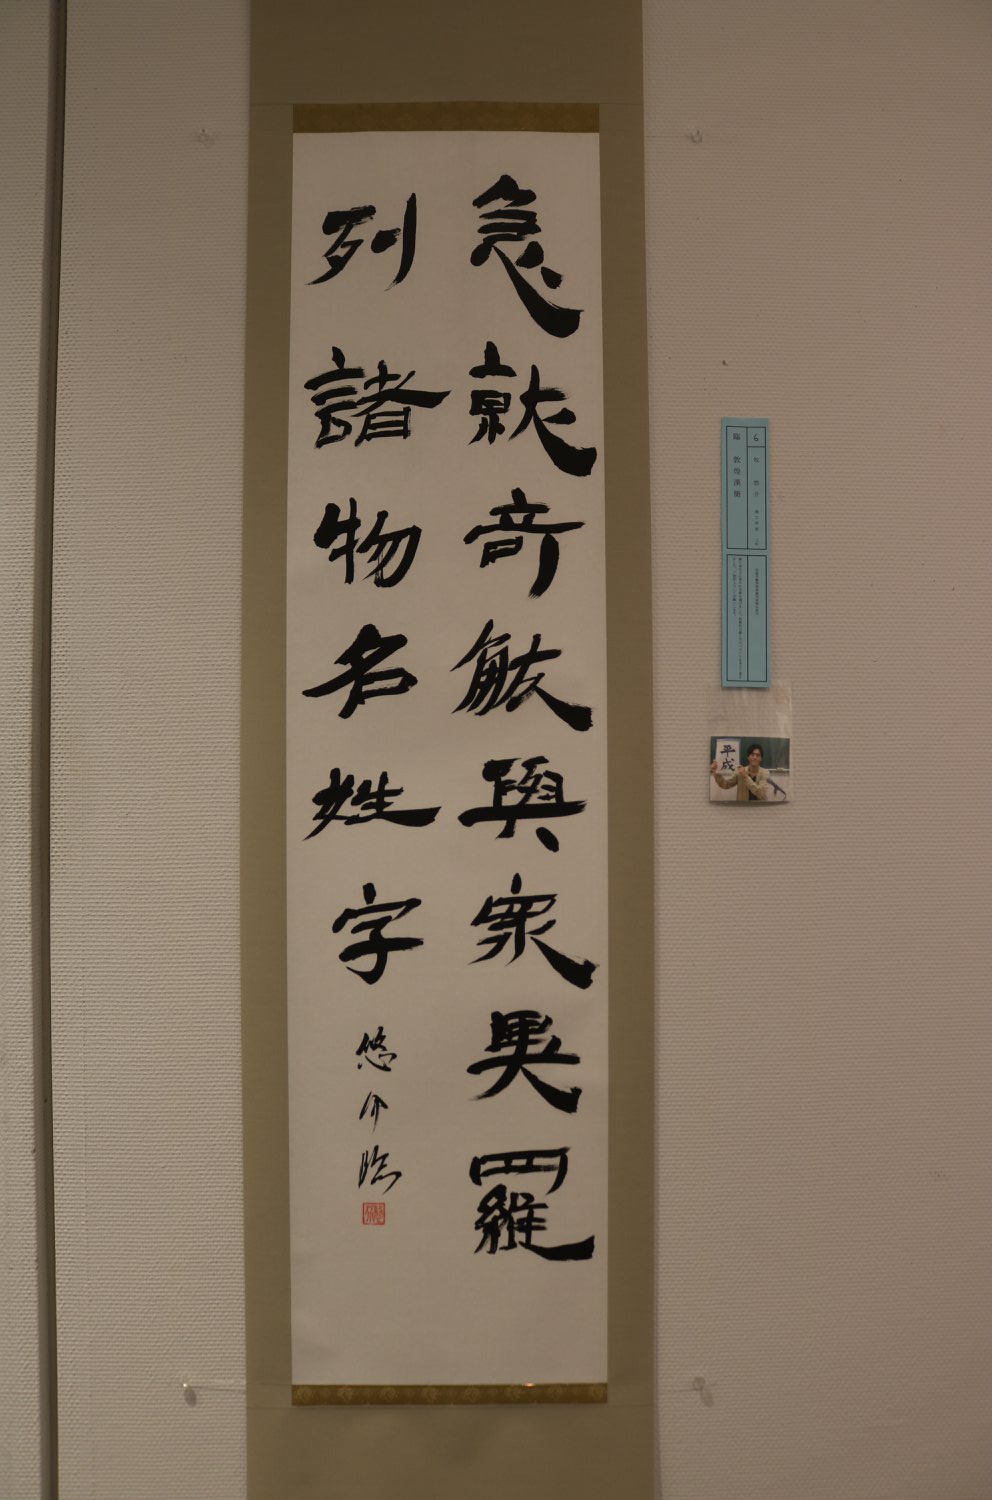 急就奇觚與衆異羅
列諸物名姓字
悠介臨
6
臨 敦煌漢簡
平成